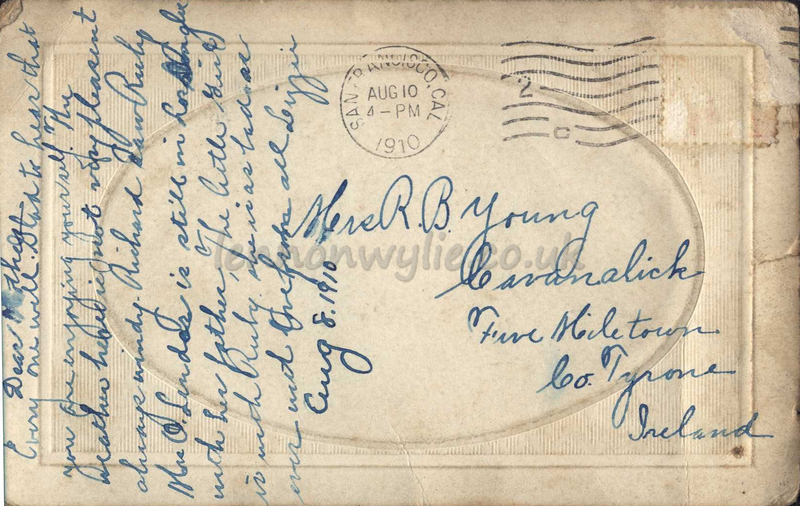 Dear Mother
Every one well. Glad to hear that
you are enjoying yourself. The
weather here is not very pleasent
always windy. Richard saw Ruby
Mrs O. is still in Los
with her father. The little Girl
is with Ruby she is as bad as
ever with love from all Lizzie
Aug 8. 1910
SAN FRANCISCO, CAL.
AUG 10
4-PM
1910
2
C
Mrs R. B. Young
Cavanalick
Five Miletown
Co. Tyrone
Ireland
lennonwylie.co.uk